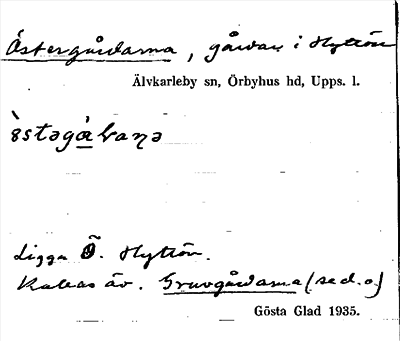 Östergårdarna, gårdar i Hyttön
Älvkarleby sn, Örbyhus hd, Upps. l.
Ligga Ö. Hyttön.
Kallas äv. Gruvgårdarna (se d.o.)
Gösta Glad 1935.